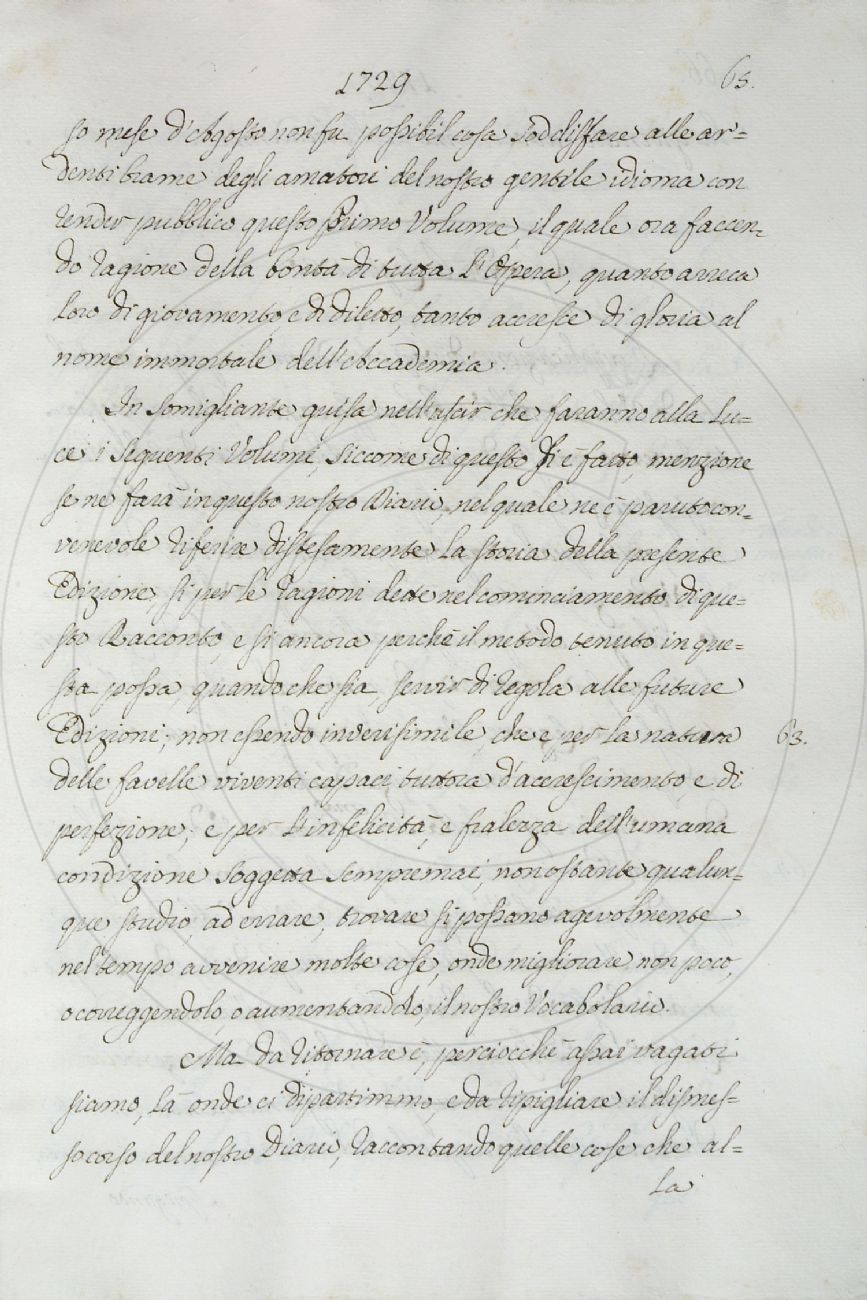 1729
65.
so mese d'Agosto non fu possibil cosa soddisfare alle ar=
denti brame degli amatori del nostro gentile idioma con
render pubblico questo Primo Volume, il quale ora faccen=
do ragione della bontà di tutta l'Opera, quanto arreca
loro di giovamento e di diletto, tanto accresce di gloria al
nome immortale dell'Accademia.
In somigliante guisa nell'uscir che faranno alla lu=
ce i seguenti Volumi, siccome di questo si è fatto, menzione
se ne farà in questo nostro Diario, nel quale ne è paruto con=
venevole riferire distesamente la storia della presente
Edizione, si per le ragioni dette nel cominciamento di que=
sto Racconto, e si ancora perchè il metodo tenuto in que=
sta possa, quando che sia, servir di regola alle future
Edizioni; non essendo inverisimile, che e per la natura
63.
delle favelle viventi capaci tuttora d'accrescimento, e di
perfezione, e per l'infelicità, e fralezza dell'umana
condizione soggetta sempremai, nonostante qualun=
que studio, ad errare, trovare si possano agevolmente
nel tempo avvenire molte cose, onde migliorare non poco,
o correggendolo, o aumentandolo, il nostro Vocabolario.
Ma da ritornare è, perciocchè assai vagati
siamo, là onde ci dipartimmo, e da ripigliare il dismes=
so corso del nostro Diario, raccontando quelle cose che al=
la